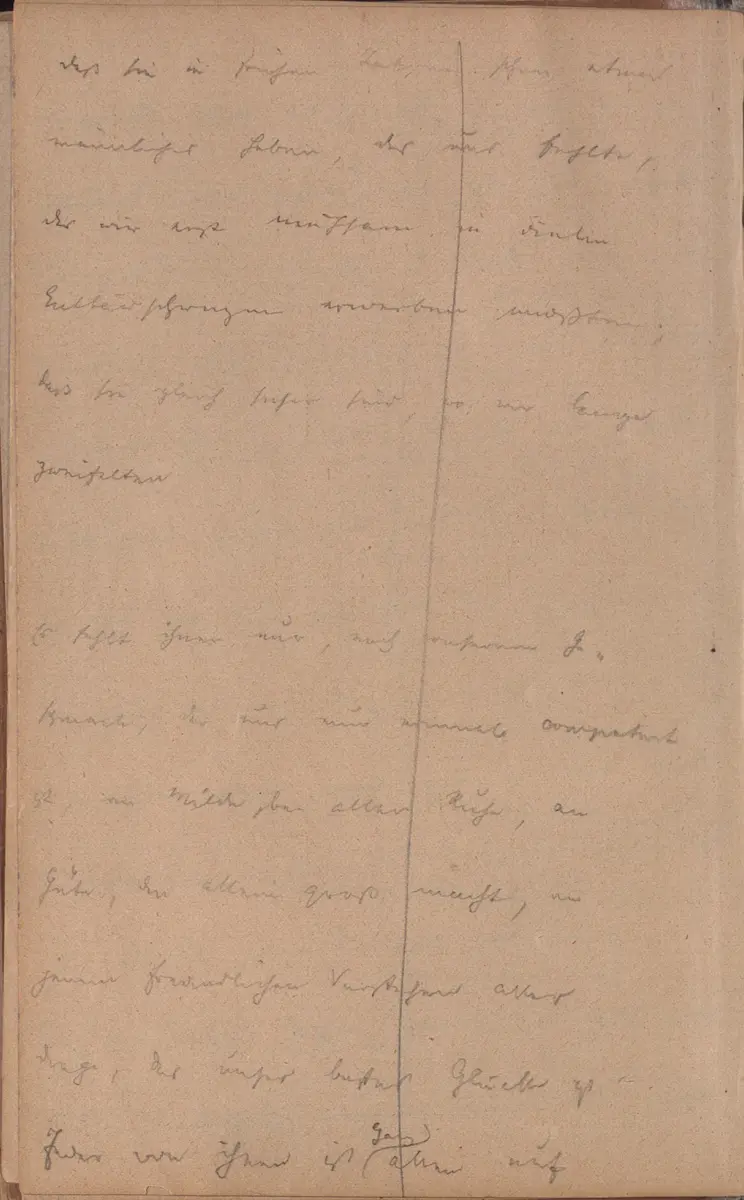 daß sie in frühen Jahren schon etwas
männliches haben, das uns fehlte,
das wir erst mühsam in vielen
Enttäuschungen erwerben mußten;
daß sie gleich sicher sind, wo wir lange
zweifelten
Es fehlt ihnen nur, nach unserem Ge-
schmack, der uns nun einmal competent
ist, an Milde, bei aller Ruhe, an
Güte, die allein groß macht, an
jenem freundlichen Verstehen aller
Dinge, das unser bestes Glück ist
Jeder von ihnen ist ganz allein auf